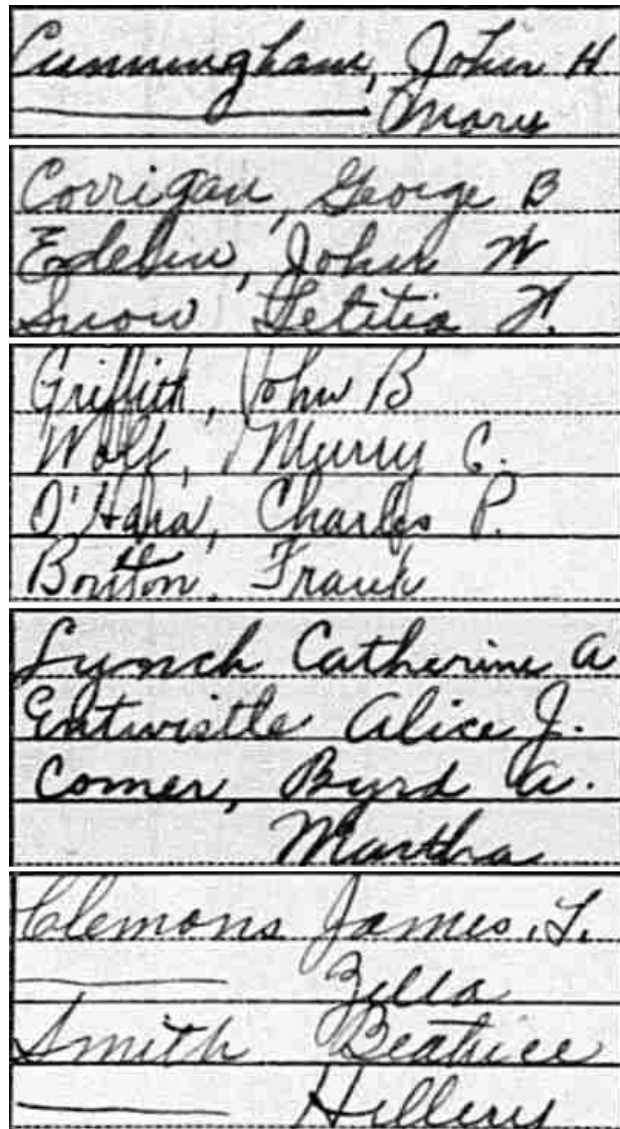 Cunningham, John H
——— Mary
Corrigan, George B
Edelin, John W
Snow Letitia W.
Griffith, John B
Wolf, Murry C.
O'Hara, Charles P.
Bouton, Frank
Lynch Catherine A
Entwistle Alice J.
Comer, Byrd A.
Martha
Clemons James. L.
——— Zella
Smith Beatrice
——— Hillery